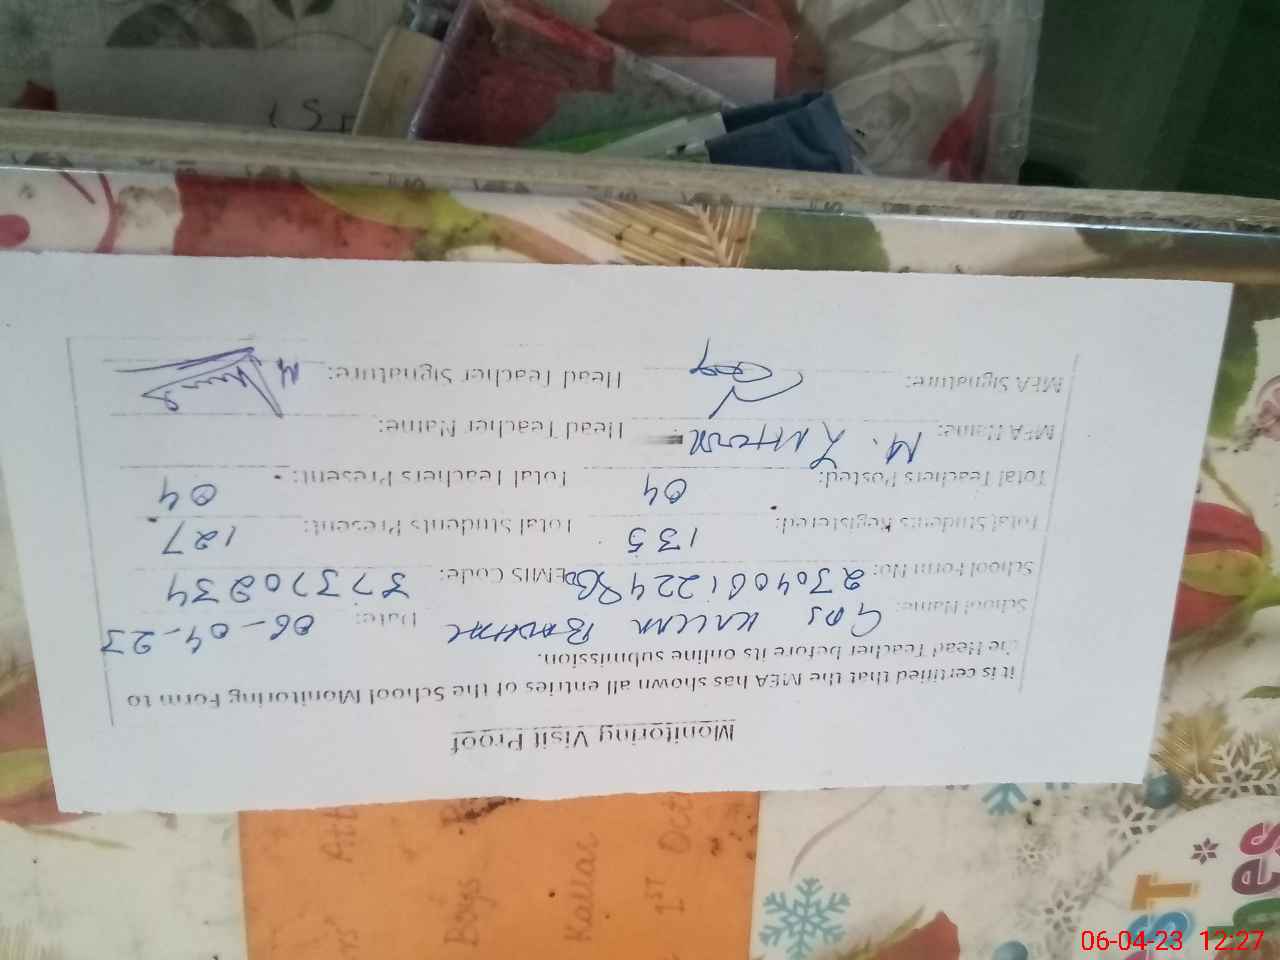 Monitoring Visit Proof
it is certified that the MEA has shown all entries of the School Monitoring Form to
the Head Teacher before its online submission.
School Name: Date: 06-04-23
School Form No: EMIS Code: 37370234
Total Students Registered: 135 Total Students Present: 127
Total Teachers Posted: 04 Total Teachers Present: 04
MEA Name: M. Head Teacher Name:
MEA Signature: Head Teacher Signature:
Boys
Kallar
1ST Oct
06-04-23 12:27